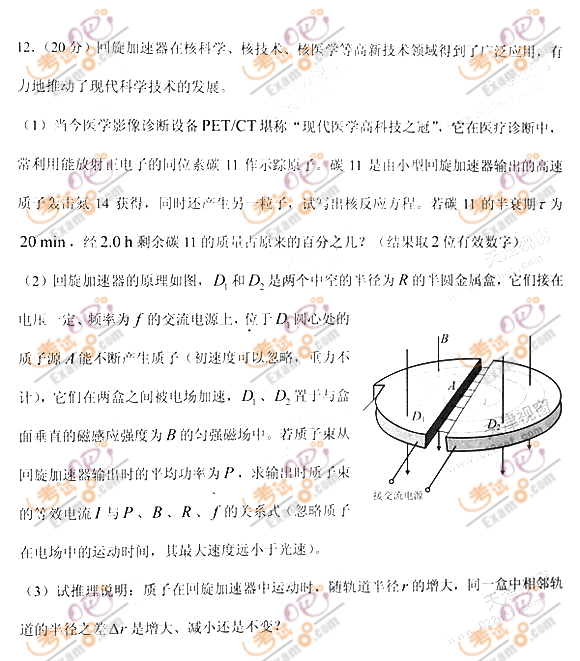 12.（20分）回旋加速器在核科学、核技术、核医学等高新技术领域得到了广泛应用，有
力地推动了现代科学技术的发展。
（1）当今医学影像诊断设备PET/CT堪称“现代医学高科技之冠”，它在医疗诊断中，
常利用能放射正电子的同位素碳11作示踪原子。碳11是由小型回旋加速器输出的高速
质子轰击氮14获得，同时还产生另一粒子，试写出核反应方程。若碳11的半衰期τ为
20min，经2.0h剩余碳11的质量占原来的百分之几？（结果取2位有效数字）
（2）回旋加速器的原理如图，D₁和D₂是两个中空的半径为R的半圆金属盒，它们接在
电压一定、频率为f的交流电源上，位于D₁圆心处的
质子源A能不断产生质子（初速度可以忽略，重力不
计），它们在两盒之间被电场加速，D₁、D₂置于与盒
面垂直的磁感应强度为B的匀强磁场中。若质子束从
回旋加速器输出时的平均功率为P，求输出时质子束
的等效电流I与P、B、R、f的关系式（忽略质子
在电场中的运动时间，其最大速度远小于光速）。
B
A
D₁
D₂
接交流电源
（3）试推理说明：质子在回旋加速器中运动时，随轨道半径r的增大，同一盒中相邻轨
道的半径之差Δr是增大、减小还是不变？